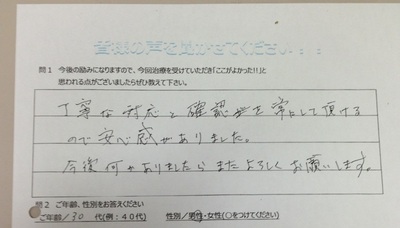 皆様の声を聞かせてください!!
問1 今後の励みになりますので、今回治療を受けていただき「ここがよかった!!」と
思われる点がございましたらぜひ教えて下さい。
丁寧な対応と確認を常にして頂ける
ので安心感がありました。
今後何かありましたらまたよろしくお願いします。
問2 ご年齢、性別をお答えください
ご年齢/30 代(例:40代) 性別/男性・女性(○をつけてください)